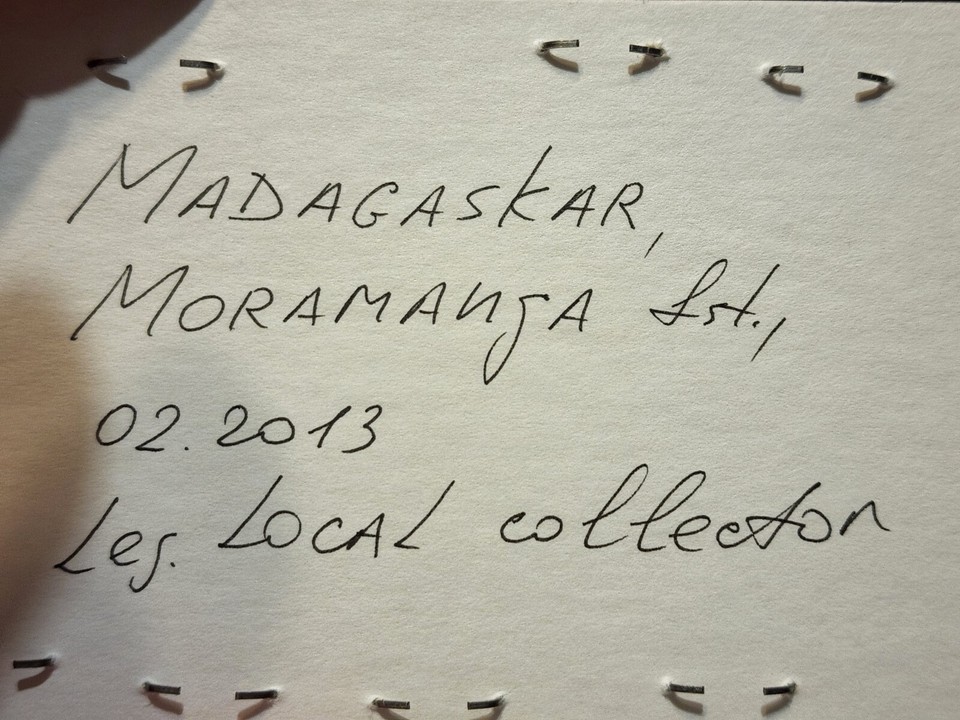 MADAGASKAR,
MORAMANGA Dst.,
02.2013
Leg. LOCAL collector